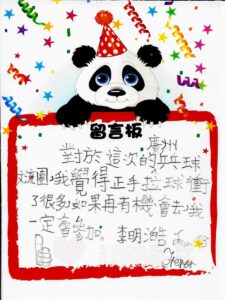 留言板
對於這次的廣州乒乓球
交流團,我覺得正手拉球衝
了很多,如果再有機會去,我
一定會參加。李明澔